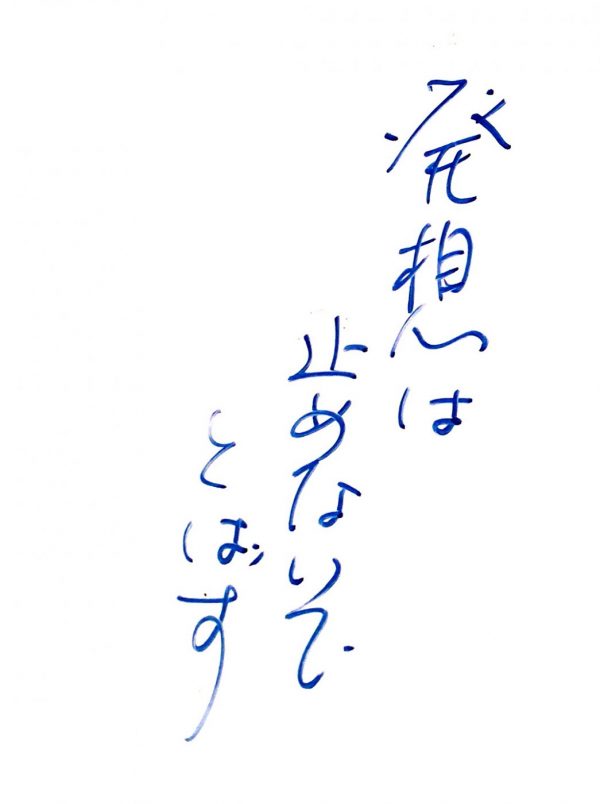 発想は
止めないで
とばす